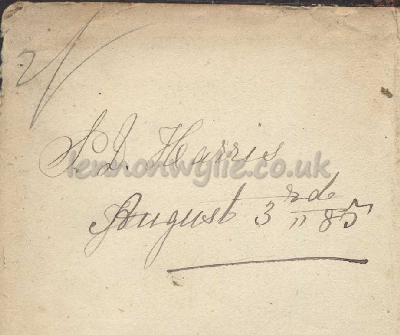 2/
S. J. Harris
lennonwylie.co.uk
August 3rd " 85